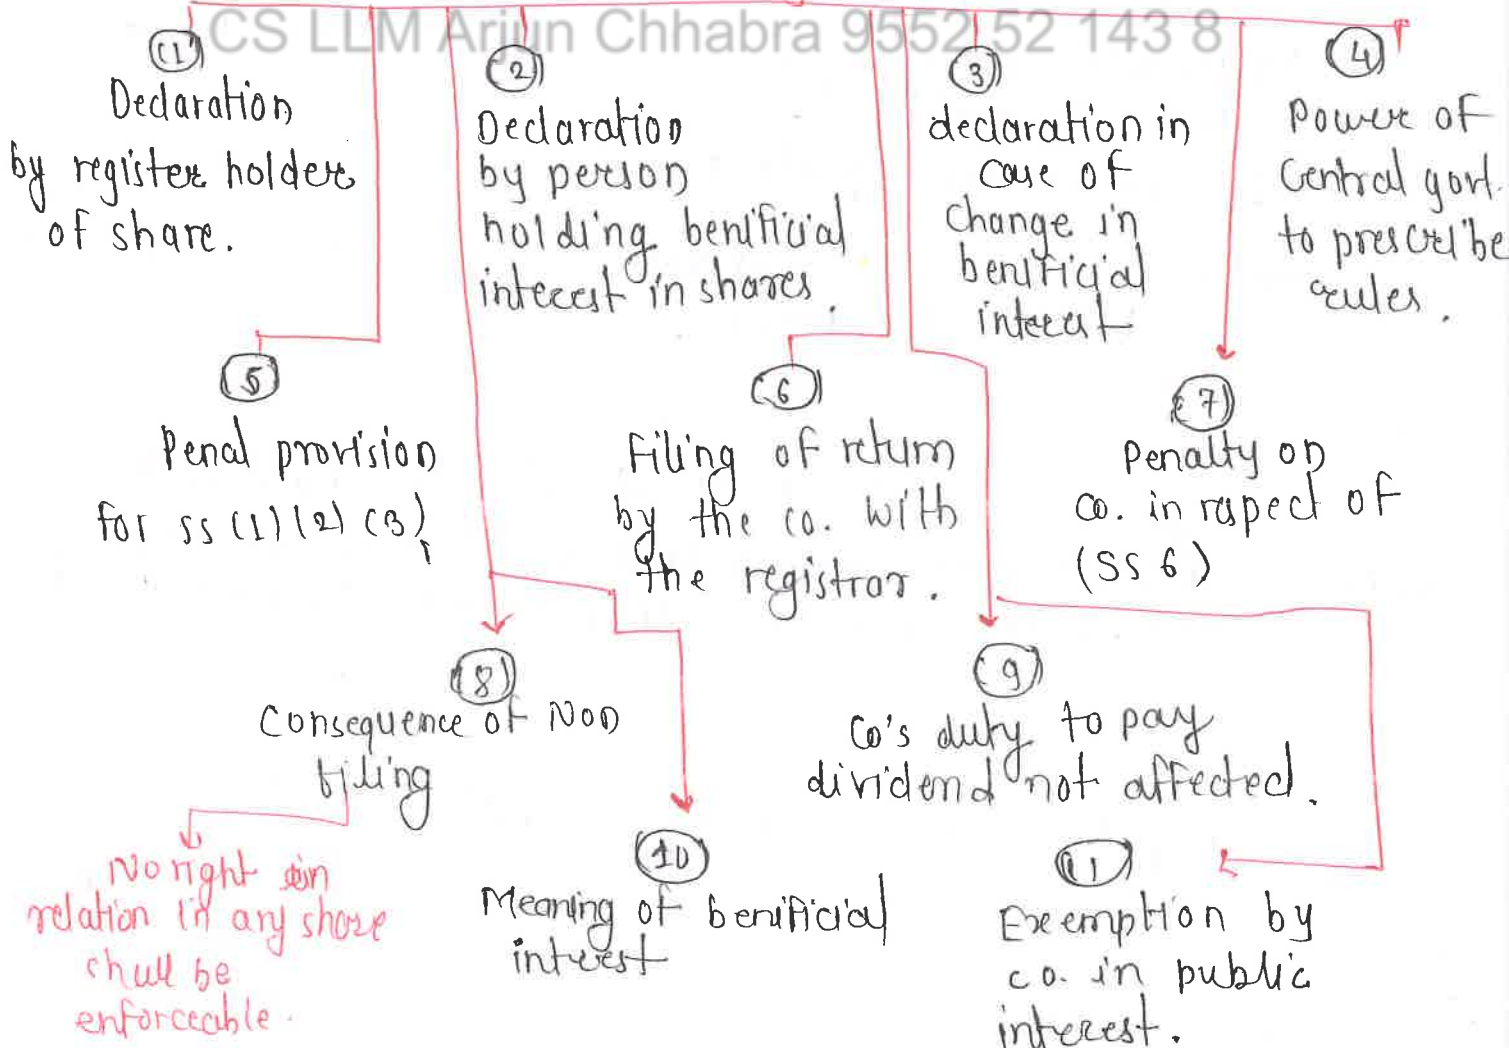 CS LLM Arjun Chhabra 9552 52 143 8
(1)
Declaration
by register holders
of share.
(2)
Declaration
by person
holding benificial
interest in shares.
(3)
declaration in
case of
change in
benificial
interest
(4)
Power of
Central govt.
to prescribe
rules.
(5)
Penal provision
for ss (1) (2) (3)
(6)
Filing of return
by the co. with
the registrar.
(7)
Penalty on
co. in rspect of
(SS 6)
(8)
Consequence of Non
filing
No right in
relation in any share
shall be
enforceable.
(9)
Co's duty to pay
dividend not affected.
(10)
Meaning of benificial
interest
(11)
Exemption by
co. in public
interest.